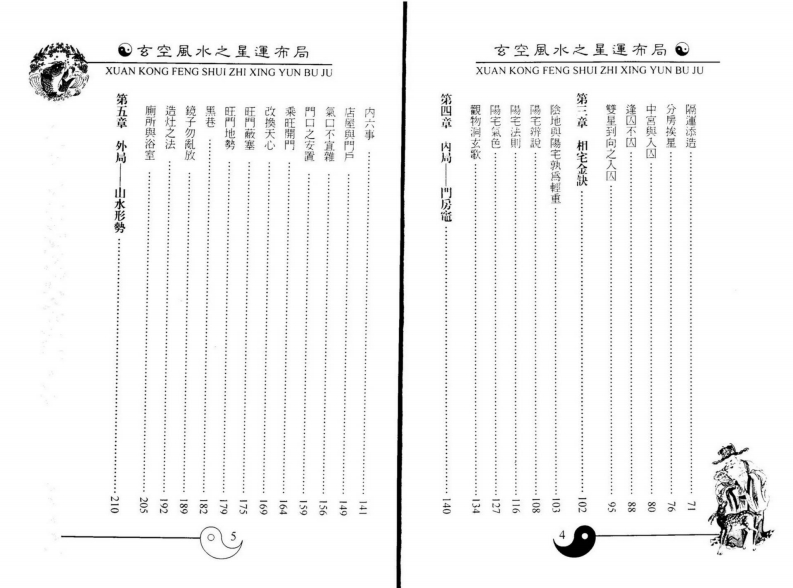 玄空風水之星運布局
XUAN KONG FENG SHUI ZHI XING YUN BU JU
隔運添造 71
分房挨星 76
中宮與入囚 80
逢囚不囚 88
雙星到向之入囚 95
第三章 相宅金訣 102
陰地與陽宅孰爲輕重 103
陽宅辨說 108
陽宅法則 116
陽宅氣色 127
觀物洞玄歌 134
第四章 內局——門房竈 140
4
玄空風水之星運布局
XUAN KONG FENG SHUI ZHI XING YUN BU JU
內六事 141
店屋與門戶 149
氣口不宜雜 156
門口之安置 159
乘旺開門 164
改換天心 169
旺門蔽塞 175
旺門地勢 179
黑巷 182
鏡子勿亂放 189
造灶之法 192
廁所與浴室 205
第五章 外局——山水形勢 210
5